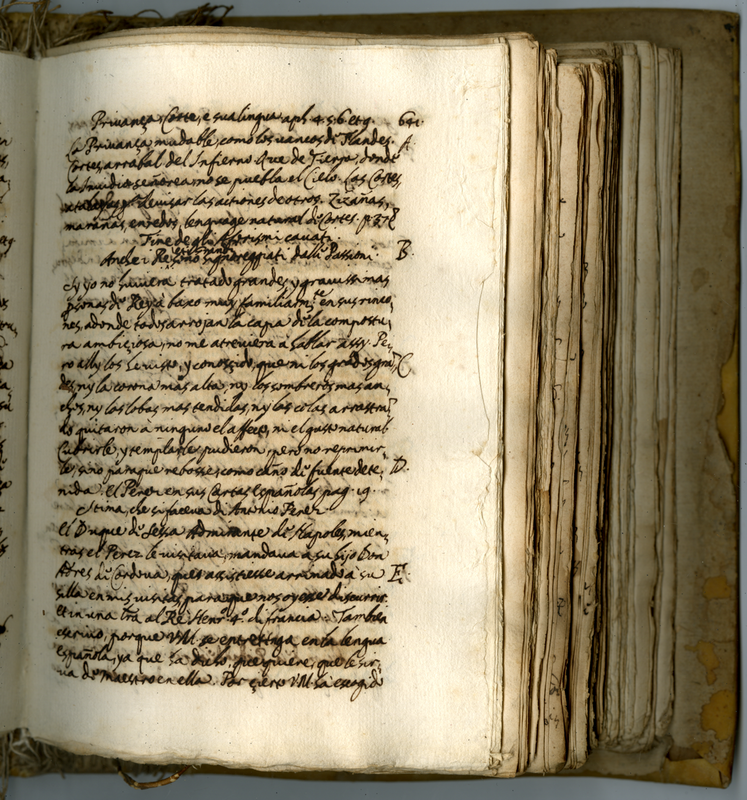 Privança, Corte, e sua lingua aph. 4. 5. 6. et q. 641.
La Privança mudable, como los vancos di Flandes. A.
Cortes, arrabal del Infierno. Que de Tierra, donde
la Imbidia señorea, no se puebla el Cielo. Las Cortes,
levisar las actiones de otros. Zizañas,
marañas, enredos, lenguage natural de Cortes. p. 378
Fine degli Aforismi cavati.
Anche i Re, sono signoreggiati dalli Passioni. B.
Sy yo no huviera tratado grandes, y gravissimas
psonas di Rey a baxo muy familiarm.te en sus rinco,
nes, adonde todos arrojan la capa di la compostu,
ra ambiziosa, no me atreviera à hablar assy. Pe,
ro assy los he visto, y conoscido, que ni los grados grã, C.
des, ny la corona mas alta, ny los sombreros mas an,
chos, ny las lobas mas tendidas, ny las colas arrastrã,
do quitaron à ninguno el affeto, ni el gusto natural
Cubrirle, y templarle pudieron, pero no reprimir,
le, sino para que rebosse, como caño di fuente dete, D.
nida. el Perez en sus Cartas Españolas, pag. 19.
Stima, che si faceva di Antonio Perez
El Duque di Sessa Admirante di Napoles, mien,
tras el Perez le visitava, mandava a su hijo Don
Adres di Cordova, que assistiesse arrimado à su E.
silla en mis visitas, para que nos oyesse discurrir.
et in una tra al Re Henr.o 4.o di francia. Tambien
escrivo, porque V.M. se entrettega en la lengua
española, ya que ha dicho, que quiere, que le sir,
va de maestro en ella. Por cierto V.M. ha escogido